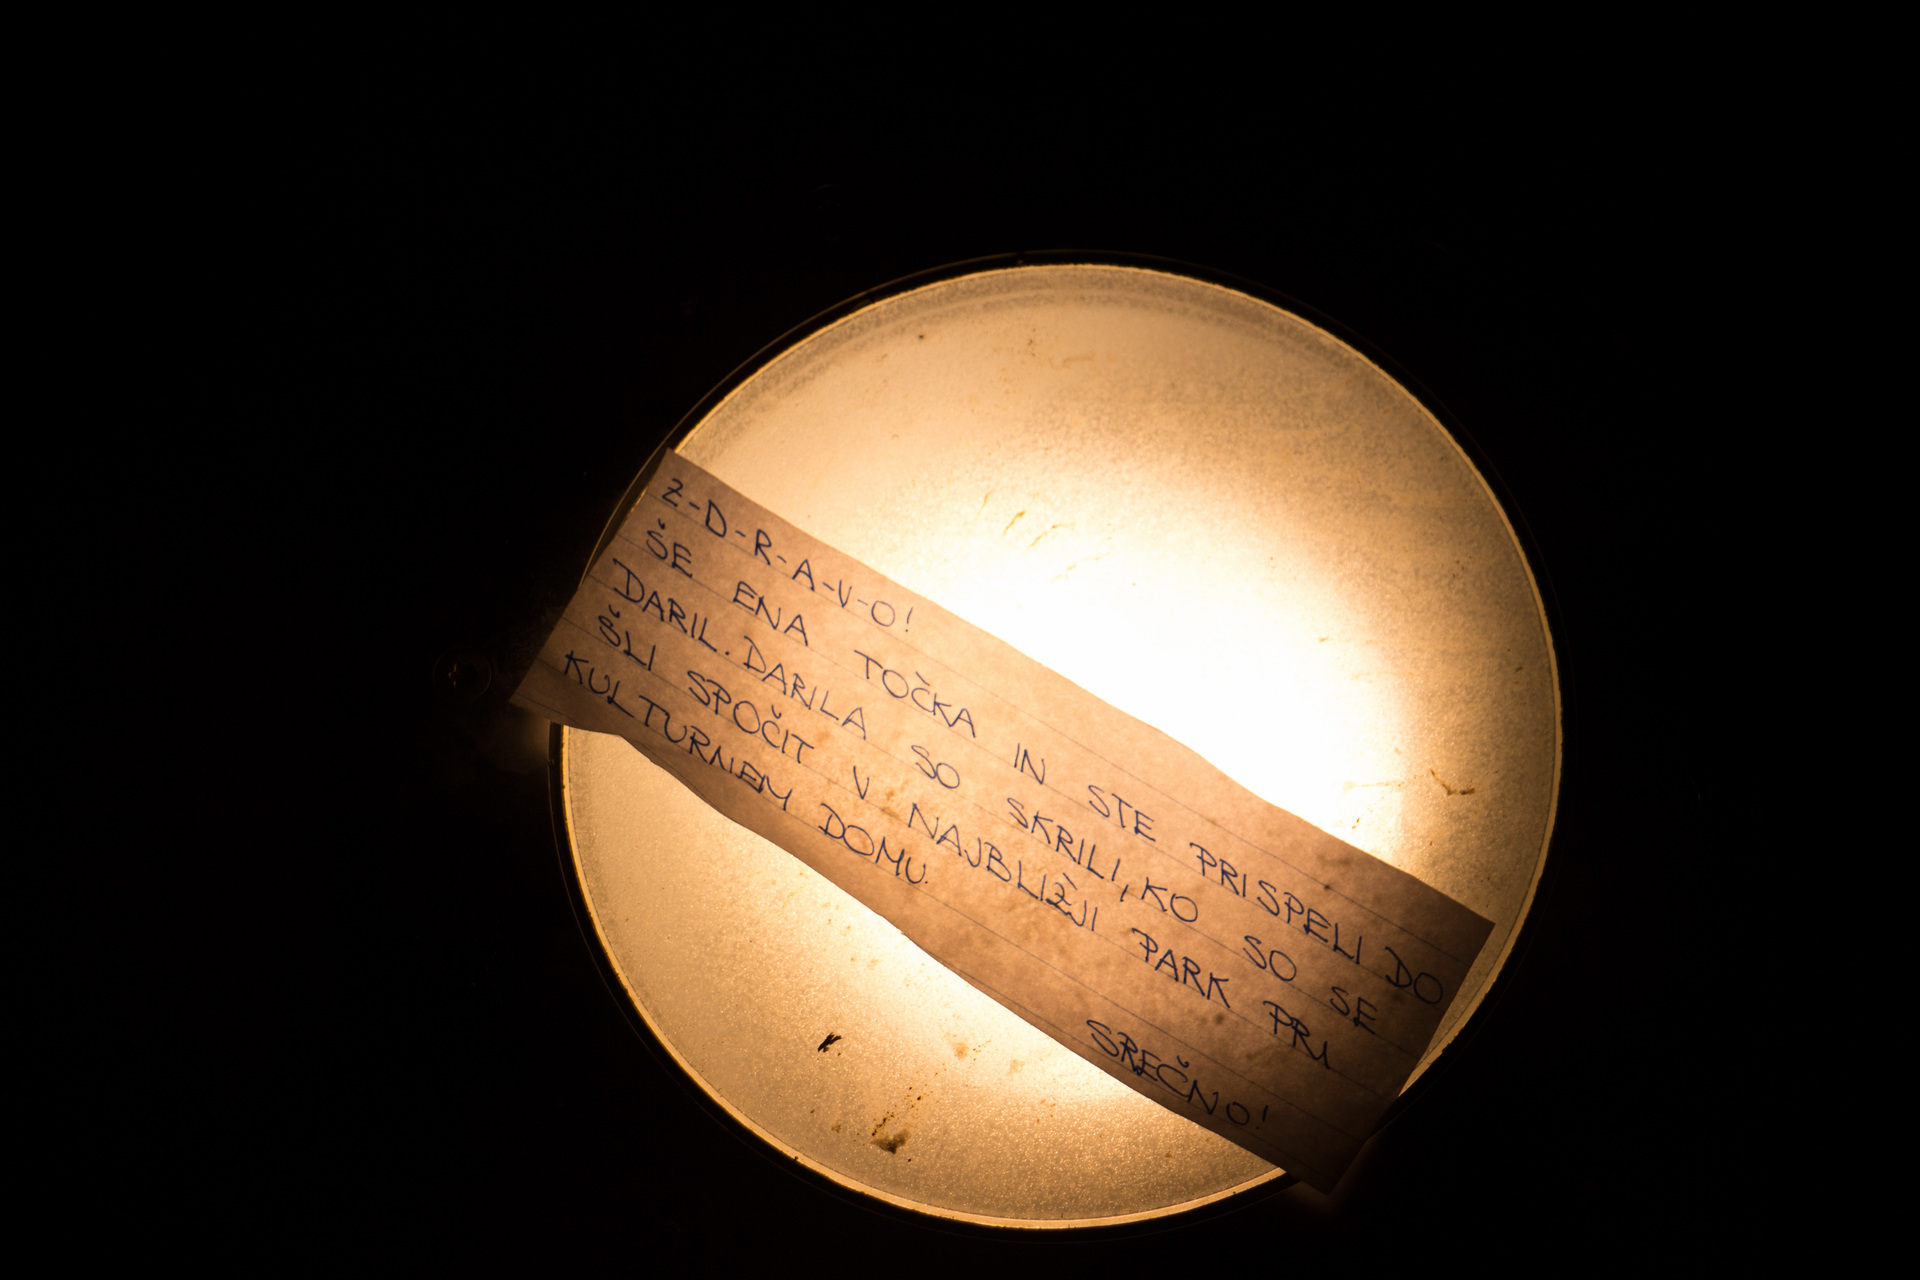 Z-D-R-A-V-O!
ŠE ENA TOČKA IN STE PRISPELI DO
DARIL. DARILA SO SKRILI, KO SO SE
ŠLI SPOČIT V NAJBLIŽJI PARK PRI
KULTURNEM DOMU.
SREČNO!